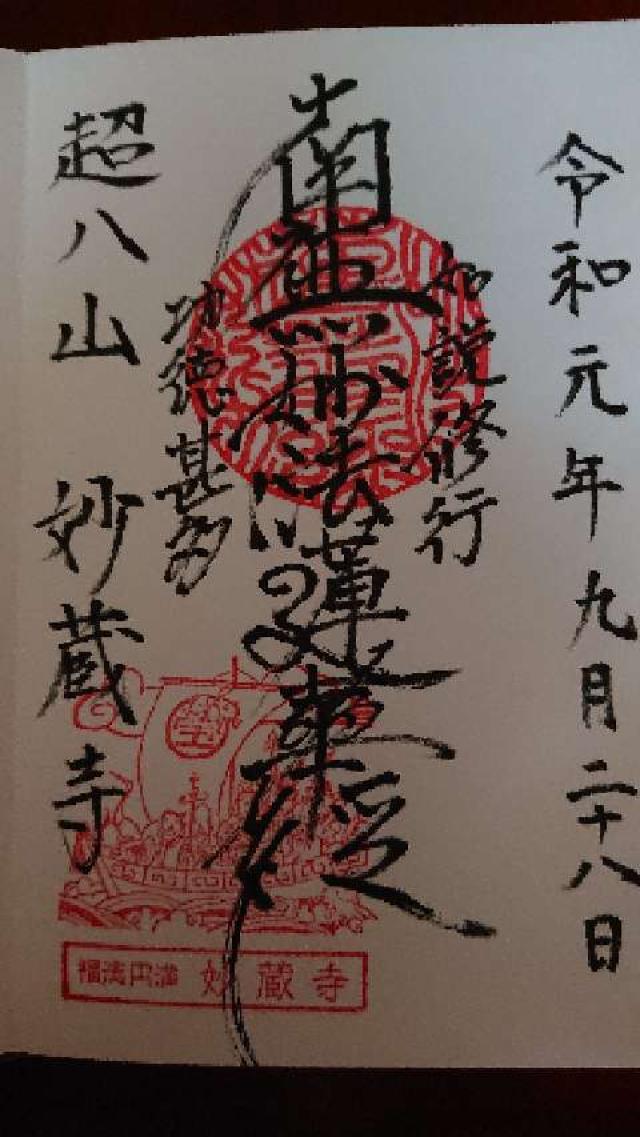 令和元年九月二十八日
如説修行
南無妙法蓮華経
功徳甚多
超八山 妙蔵寺
宝
福寿円満 妙蔵寺